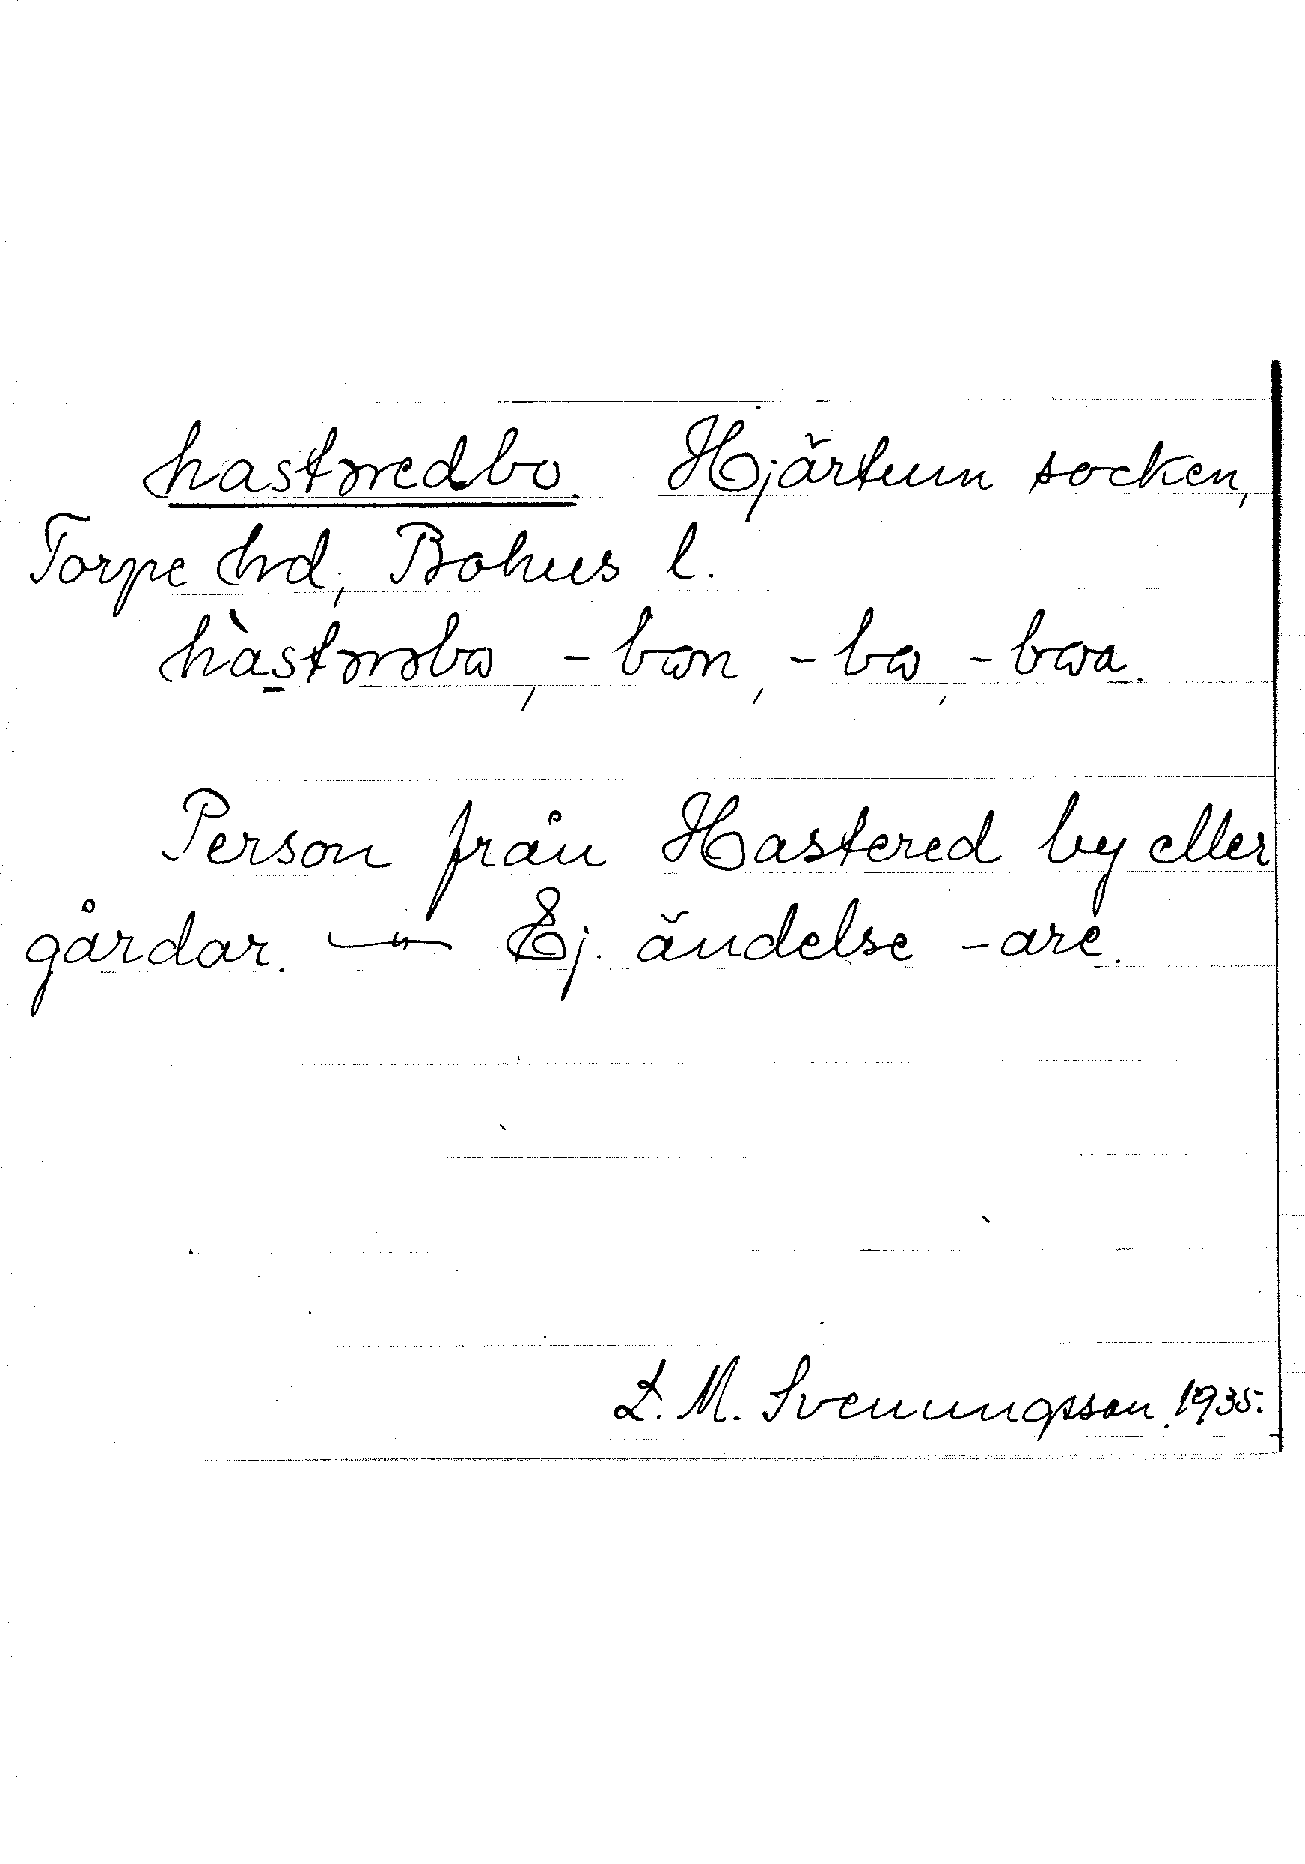 hastəredbo Hjärtum socken,
Torpe hd, Bohus l.
hàstərəbɷ, -bɷn, -bɷ, -bɷa.
Person från Hastered by eller
gårdar. —"— Ej. ändelse -are.
L. M. Svenungsson 1935.